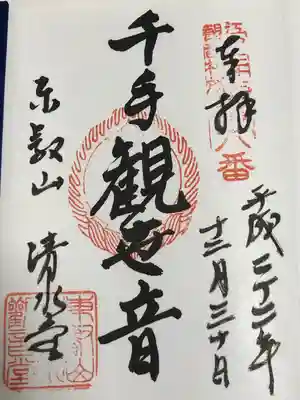 八番
奉拝
平成二十二年
十二月三十日
千手観世音
東叡山
清水堂